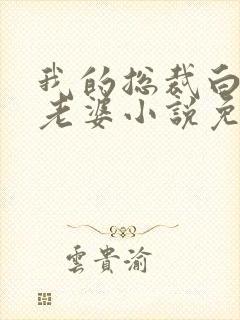 我的总裁白
老婆小說免
雲貴渝